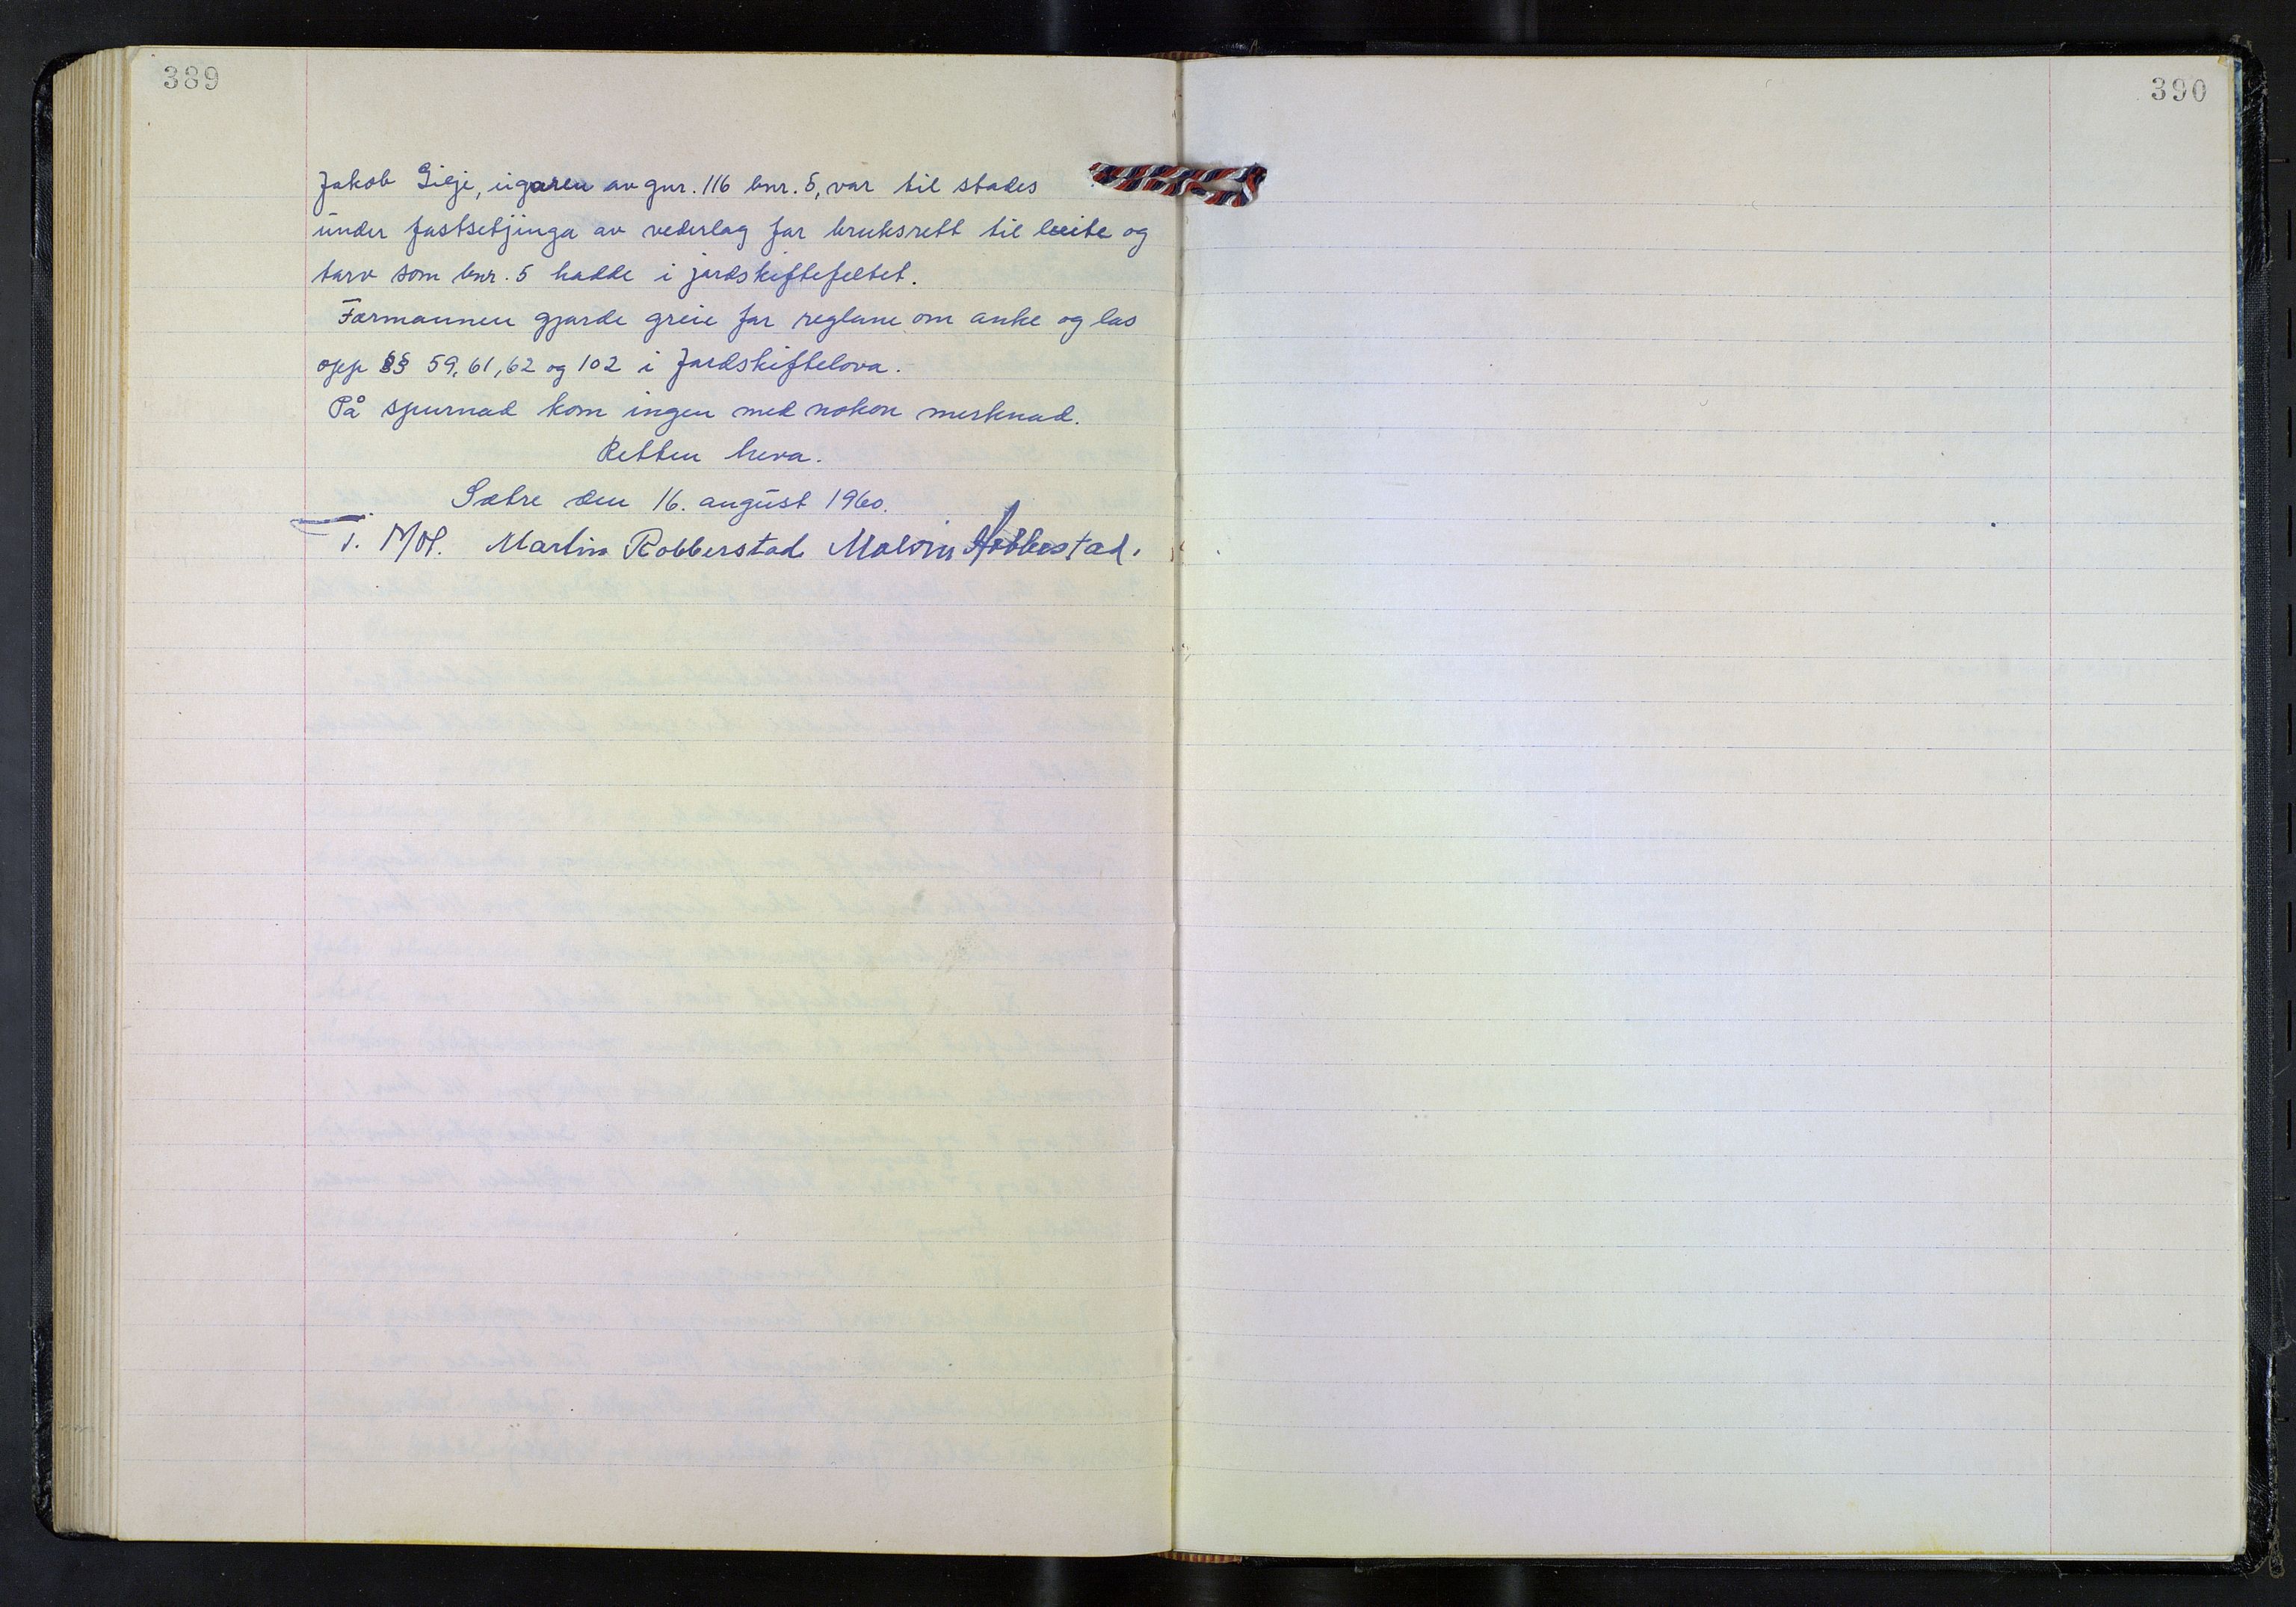 389
390
Jakob Gilje, eigaren av gnr. 116 bnr. 5, var til stades
under fastsetjinga av vederlag for bruksrett til beite og
torv som bnr. 5 hadde i jordskiftefeltet.
Formannen gjorde greie for reglane om anke og las
opp §§ 59, 61, 62 og 102 i Jordskiftelova.
På spurnad kom ingen med nokon merknad.
Retten heva.
Sætre den 16. august 1960.
T. Mo. Martin Robberstad Malvin Hobberstad.